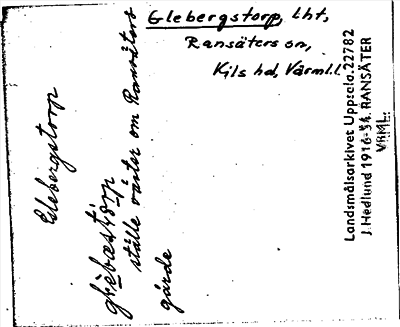 Glebergstorp, lht,
Ransäters sn,
Kils hd, Värml.l.
Glebergstorp
ställe väster om Ransäters
gärde
Landsmålsarkivet Uppsala. 22782
J. Hedlund 1916-34. RANSÄTER
VRML.